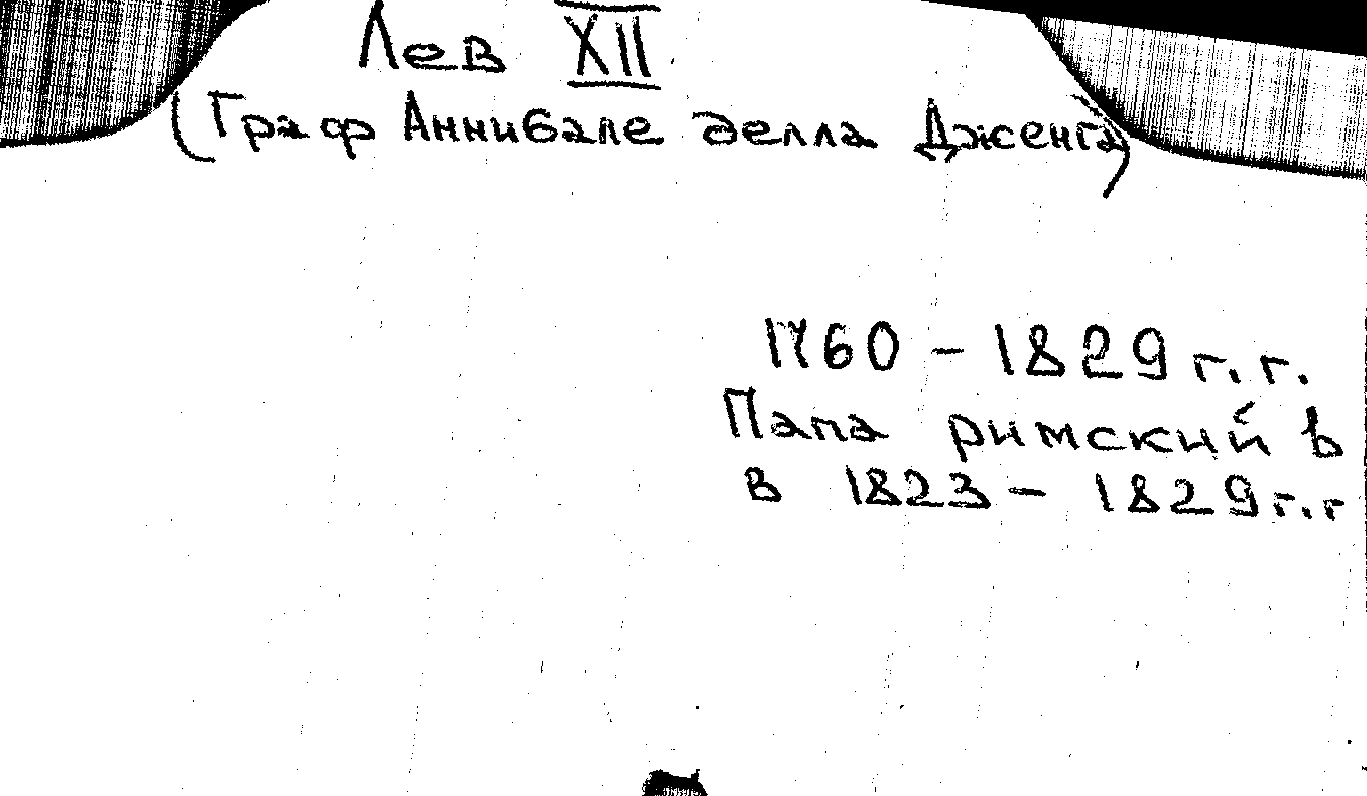 Лев XII
(Граф Аннибале делла Дженга)
1760 – 1829 г. г.
Папа римский в
в 1823 – 1829 г.г